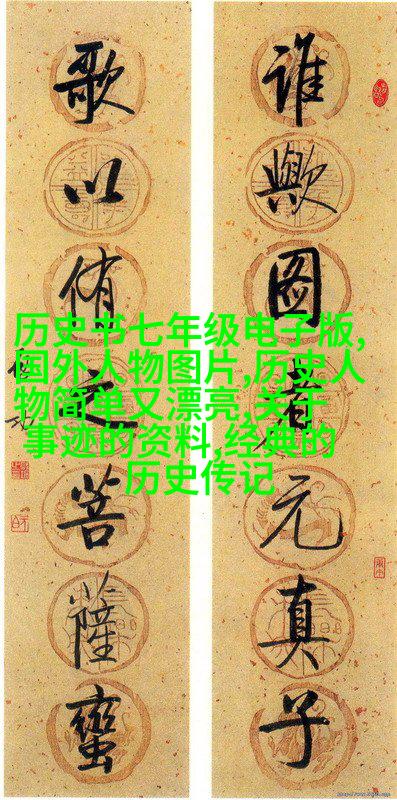 谁欤图者元真子
歌以侑之菩萨蛮
历史书七年级电子版,
国外人物图片,历史人
物简单又漂亮,关于
事迹的资料,经典的
历史传记